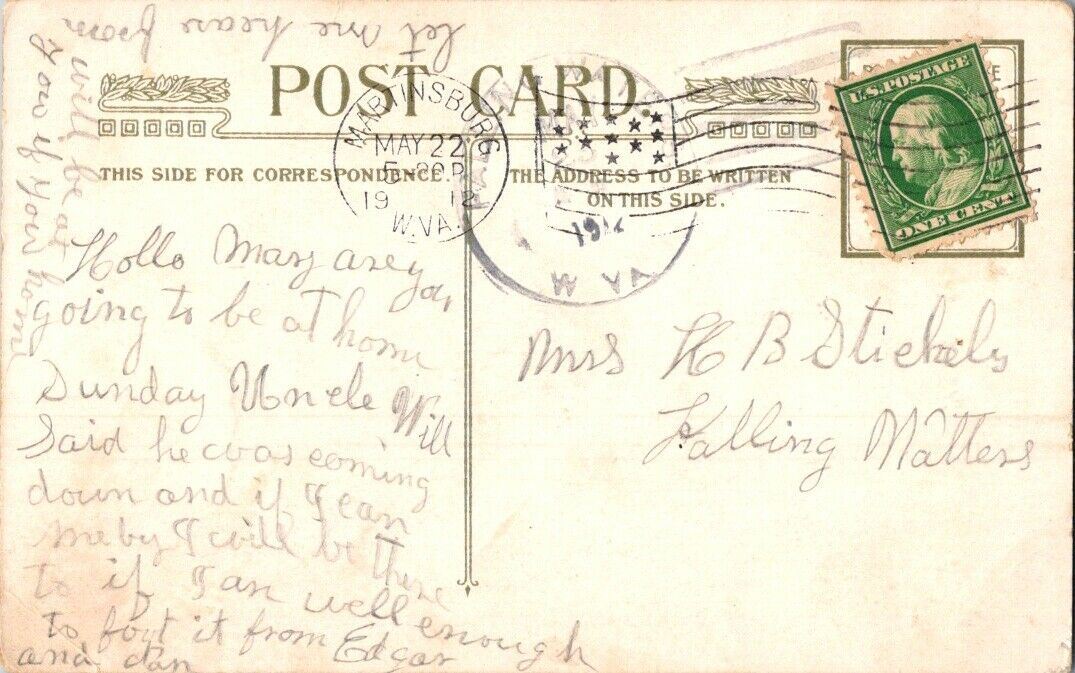 POST CARD.
THIS SIDE FOR CORRESPONDENCE.
THE ADDRESS TO BE WRITTEN
ON THIS SIDE.
MARTINSBURG
MAY 22
5 30 P
1912
W.VA.
1912
W VA
U.S. POSTAGE
ONE CENT
Hollo Mary arey you
going to be at home
Sunday Uncle Will
Said he was coming
down and if I can
meby I will be there
to if I an well enough
to foot it from Edgar
and dan
let me hear from
you if your home
will be at
Mrs H B Stickely
Falling Watters